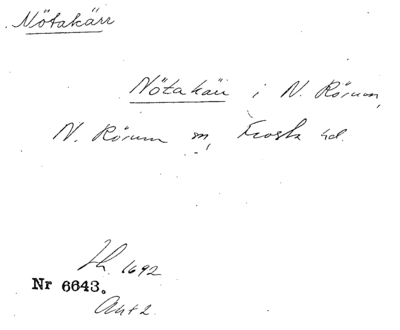 Nötakärr
Nötakärr i N. Rörum,
N. Rörum sn, Frosta hd.
Lh. 1692
Nr 6643.
Akt 2.